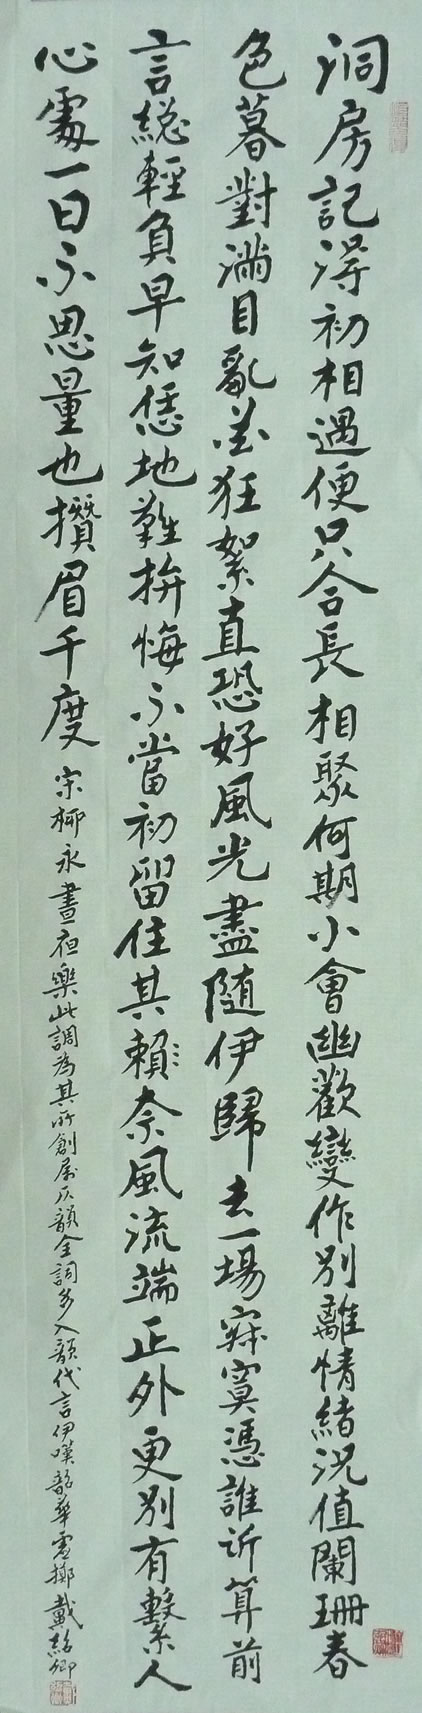 洞房記得初相遇便只合長相聚何期小會幽歡變作別離情緒況值闌珊春
色暮對滿目亂花狂絮直恐好風光盡隨伊歸去一場寂寞憑誰訴算前
言總輕負早知恁地難拚悔不當初留住其賴奈風流端正外更別有繫人
心處一日不思量也攢眉千度
宋柳永晝夜樂此調為其所創屬仄韻全詞多入韻代言伊嘆韶華虛擲戴紹卿